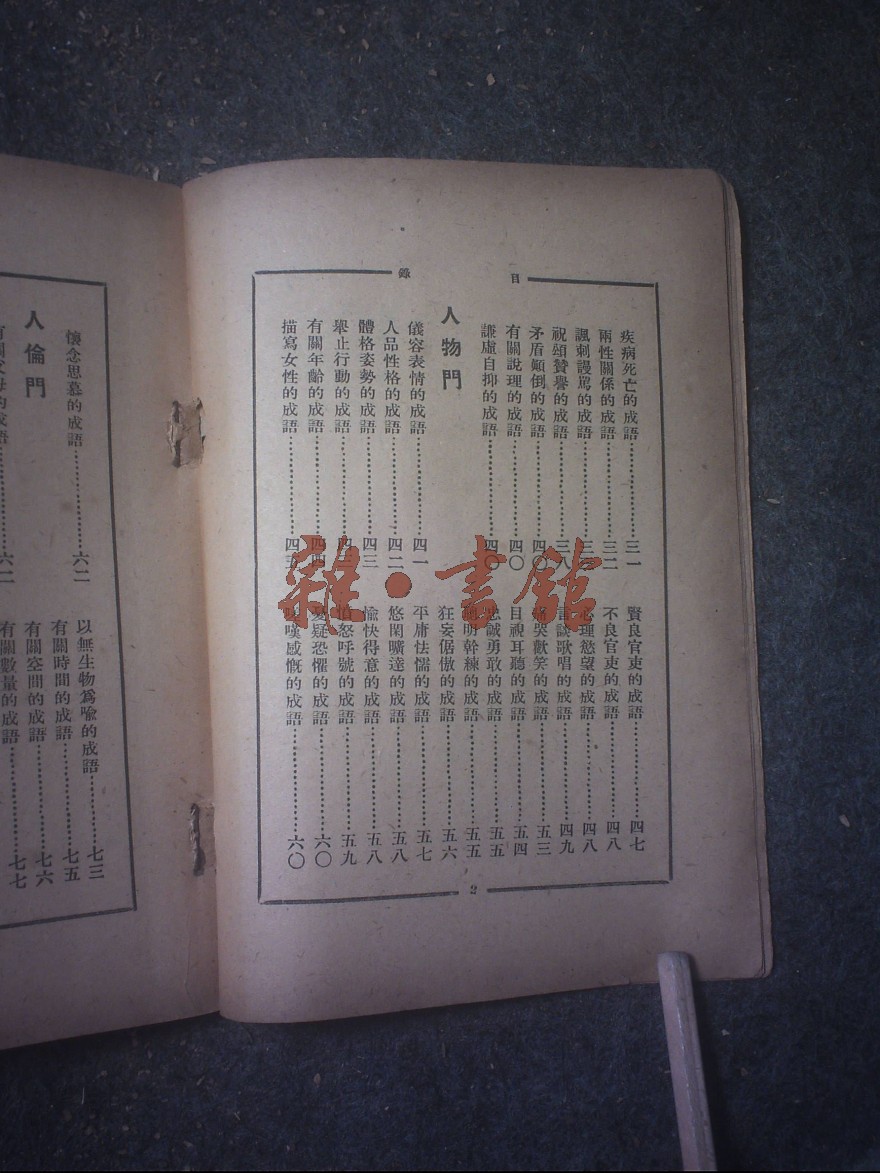 目錄
疾病死亡的成語…………三一
兩性關係的成語…………三二
諷刺謾罵的成語…………三
祝頌贊譽的成語…………三八
矛盾顛倒的成語…………四〇
有關說理的成語…………四〇
謙虛自抑的成語…………四〇
人物門
儀容表情的成語…………四一
人品性格的成語…………四二
體格姿勢的成語…………四三
舉止行動的成語…………四
有關年齡的成語…………四四
描寫女性的成語…………四五
賢良官吏的成語…………四七
不良官吏的成語…………四八
心理慾望的成語…………四八
言談歌唱的成語…………四九
痛哭歡笑的成語…………五三
目視耳聽的成語…………五四
忠誠勇敢的成語…………五五
聰明幹練的成語…………五五
狂妄倨傲的成語…………五六
平庸怯懦的成語…………五七
悠閑曠達的成語…………五八
愉快得意的成語…………五八
憤怒呼號的成語…………五九
憂疑恐懼的成語…………六〇
嘆感慨的成語…………六〇
2
懷念思慕的成語…………六二
人倫門
有關父母的成語…………六二
以無生物爲喩的成語…………七三
有關時間的成語…………七五
有關空間的成語…………七六
有關數量的成語…………七七
雜·書館